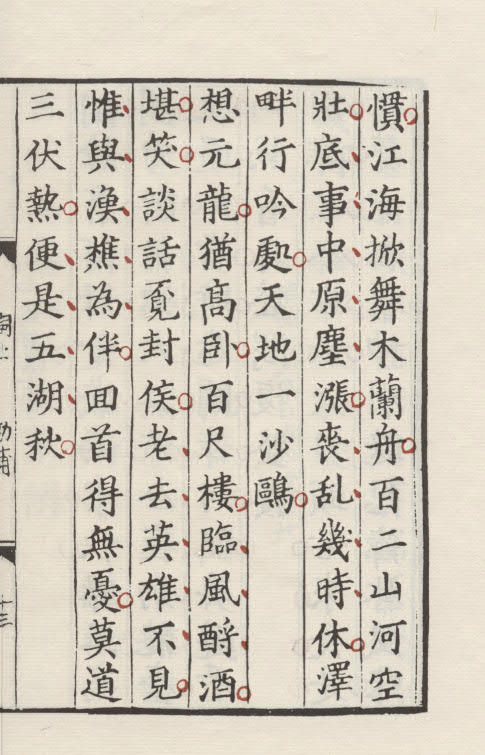 慣江海掀舞木蘭舟百二山河空
壯底事中原塵漲喪乱幾時休澤
畔行吟處天地一沙鷗
想元龍猶髙卧百尺樓臨風酹酒
堪笑談話覔封侯老去英雄不見
惟與漁樵為伴囬首得無憂莫道
三伏熱便是五湖秋
十三